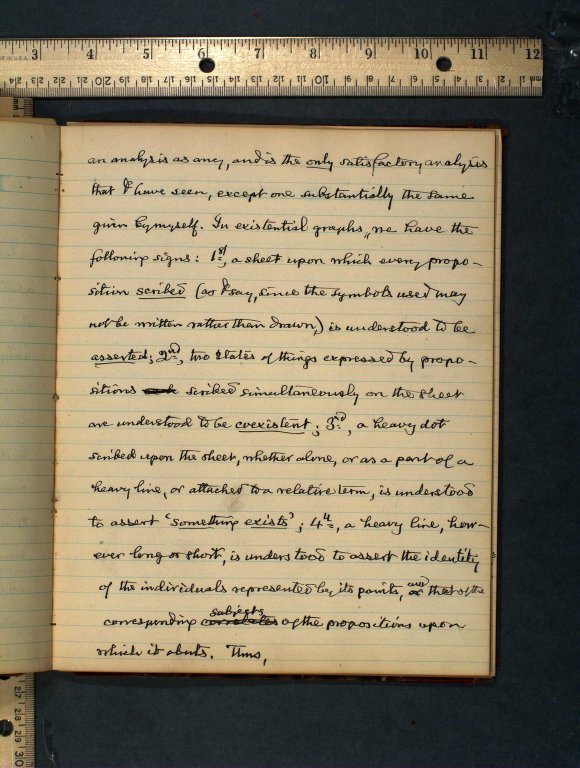 3 4 5 6 7 8 9 10 11 12
an analysis as any, and is the only satisfactory analysis
that I have seen, except one substantially the same
given by myself. In existential graphs, we have the
following signs: 1st, a sheet upon which every propo-
sition scribed (as I say, since the symbols used may
not be written rather than drawn,) is understood to be
asserted; 2nd, two states of things expressed by propo-
sitions scribed simultaneously on the sheet
are understood to be coexistent; 3rd, a heavy dot
scribed upon the sheet, whether alone, or as a part of a
heavy line, or attached to a relative term, is understood
to assert 'something exists'; 4th, a heavy line, how-
ever long or short, is understood to assert the identity
of the individuals represented by its points, and that of the
corresponding subjects of the propositions upon
which it abuts. Thus,